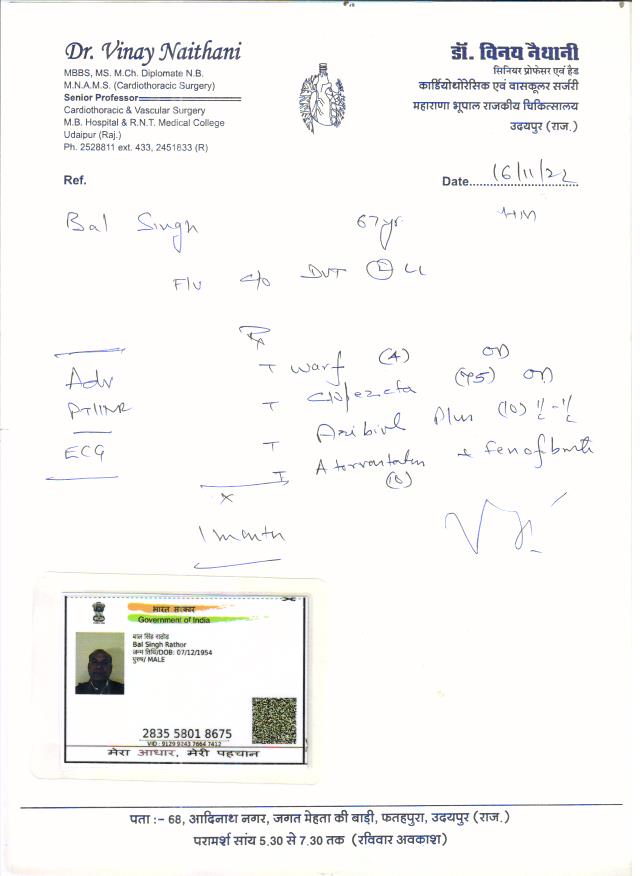 Dr. Vinay Naithani
MBBS, MS. M.Ch. Diplomate N.B.
M.N.A.M.S. (Cardiothoracic Surgery)
Senior Professor
Cardiothoracic & Vascular Surgery
M.B. Hospital & R.N.T. Medical College
Udaipur (Raj.)
Ph. 2528811 ext. 433, 2451833 (R)
डॉ. विनय नैथानी
सिनियर प्रोफेसर एवं हैड
कार्डियोथोरेसिक एवं वासकूलर सर्जरी
महाराणा भूपाल राजकीय चिकित्सालय
उदयपुर (राज.)
Ref.
Date 16/11/22
Bal Singh 67 yr
F/U c/o DVT (L) LL
Rx
Adv
PT/INR
ECG
T Warf (4) OD
T (75) OD
T Plus (10)
T Atorvastatin + fenofbrate
(10)
x
1 month
भारत सरकार
Government of India
बाल सिंह राठौड
Bal Singh Rathor
जन्म तिथि/DOB: 07/12/1954
पुरुष/ MALE
2835 5801 8675
VID : 9129 9243 7664 7412
मेरा आधार, मेरी पहचान
पता :– 68, आदिनाथ नगर, जगत मेहता की बाड़ी, फतहपुरा, उदयपुर (राज.)
परामर्श सांय 5.30 से 7.30 तक (रविवार अवकाश)